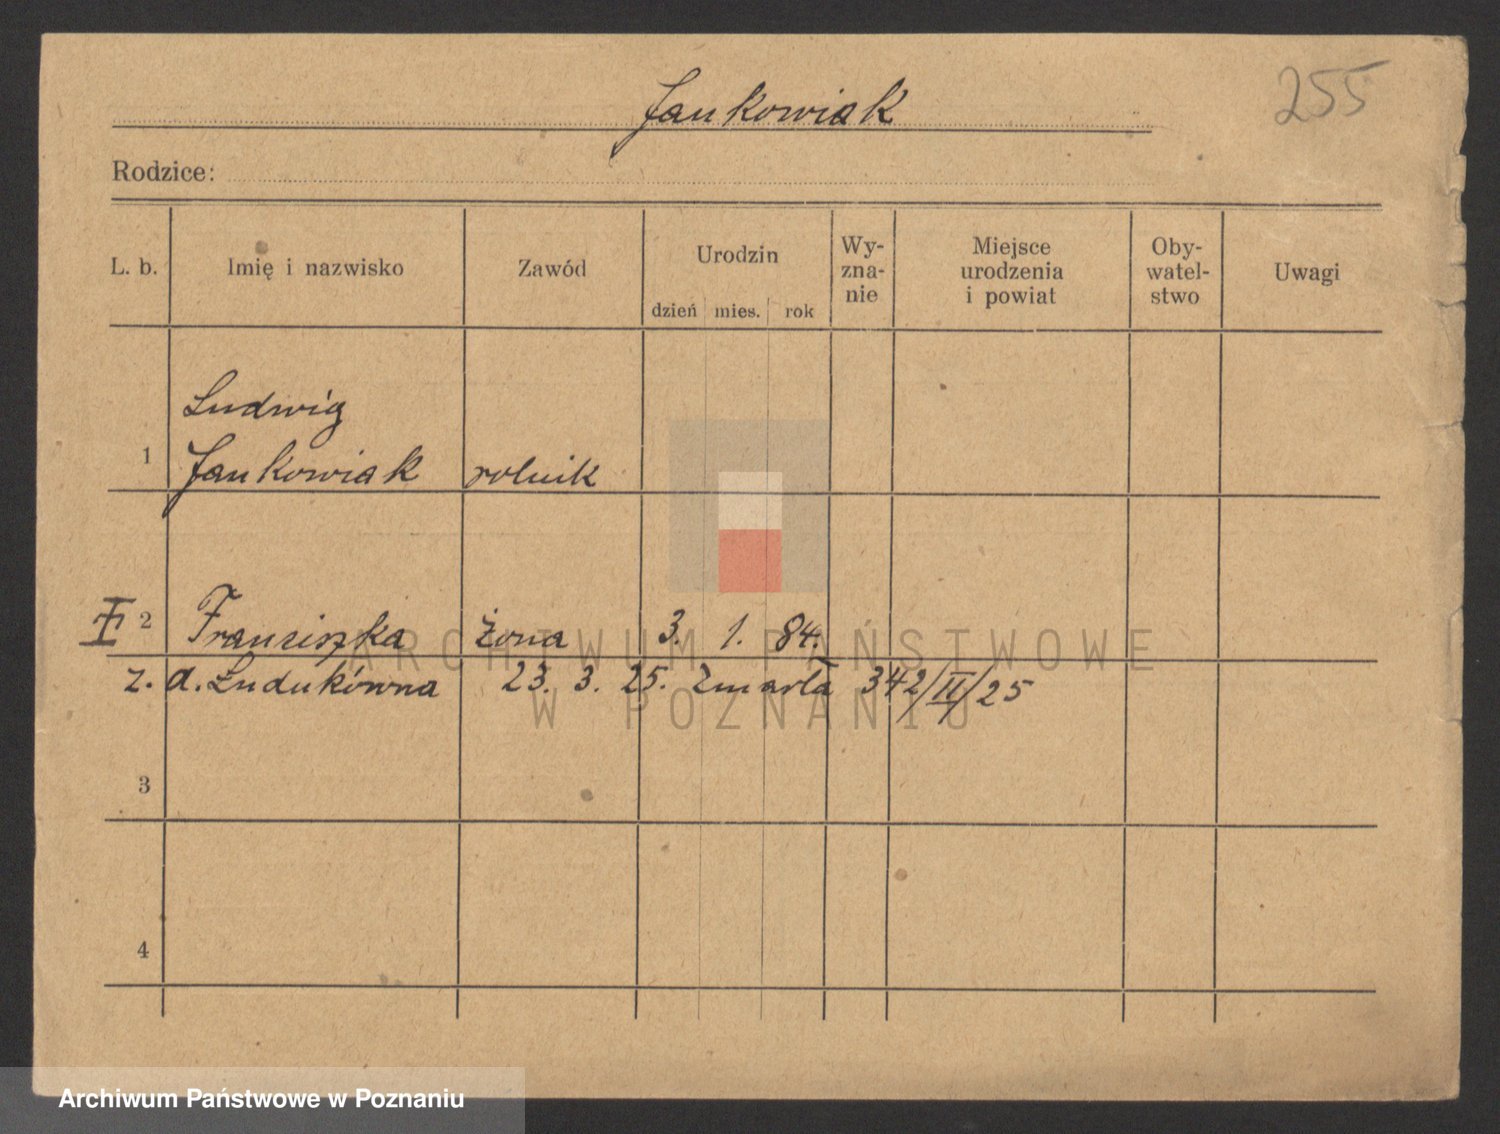 Jankowiak
255
Rodzice:
L. b.
Imię i nazwisko
Zawód
Urodzin
dzień mies. rok
Wy-
zna-
nie
Miejsce
urodzenia
i powiat
Oby-
watel-
stwo
Uwagi
Ludwig
1 Jankowiak rolnik
2 Franciszka żona 3. 1. 84.
z. d. Ludukówna 23. 3. 25. Zmarła 342/II/25
3
4
ARCHIWUM PAŃSTWOWE
W POZNANIU
Archiwum Państwowe w Poznaniu